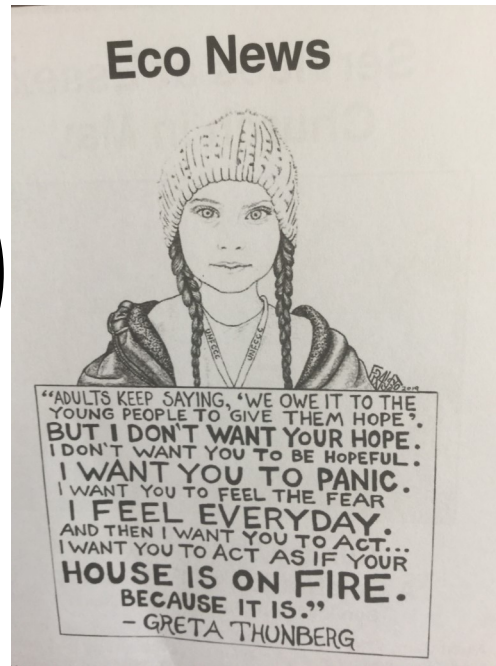 Eco News
UNFCCC UNFCCC
2019
“ADULTS KEEP SAYING, ‘WE OWE IT TO THE
YOUNG PEOPLE TO GIVE THEM HOPE’.
BUT I DON'T WANT YOUR HOPE.
I DON'T WANT YOU TO BE HOPEFUL.
I WANT YOU TO PANIC.
I WANT YOU TO FEEL THE FEAR
I FEEL EVERYDAY.
AND THEN I WANT YOU TO ACT...
I WANT YOU TO ACT AS IF YOUR
HOUSE IS ON FIRE.
BECAUSE IT IS.”
– GRETA THUNBERG